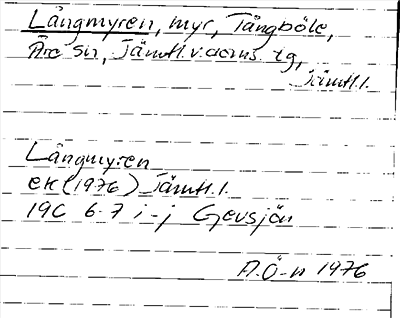 Långmyren, myr, Tångböle,
Åre sn, Jämtl. v:a doms. tg,
Jämtl. l.
Långmyren
ek (1976) Jämtl. l.
19C 6-7 i-j Gevsjön
A.Ö-n 1976